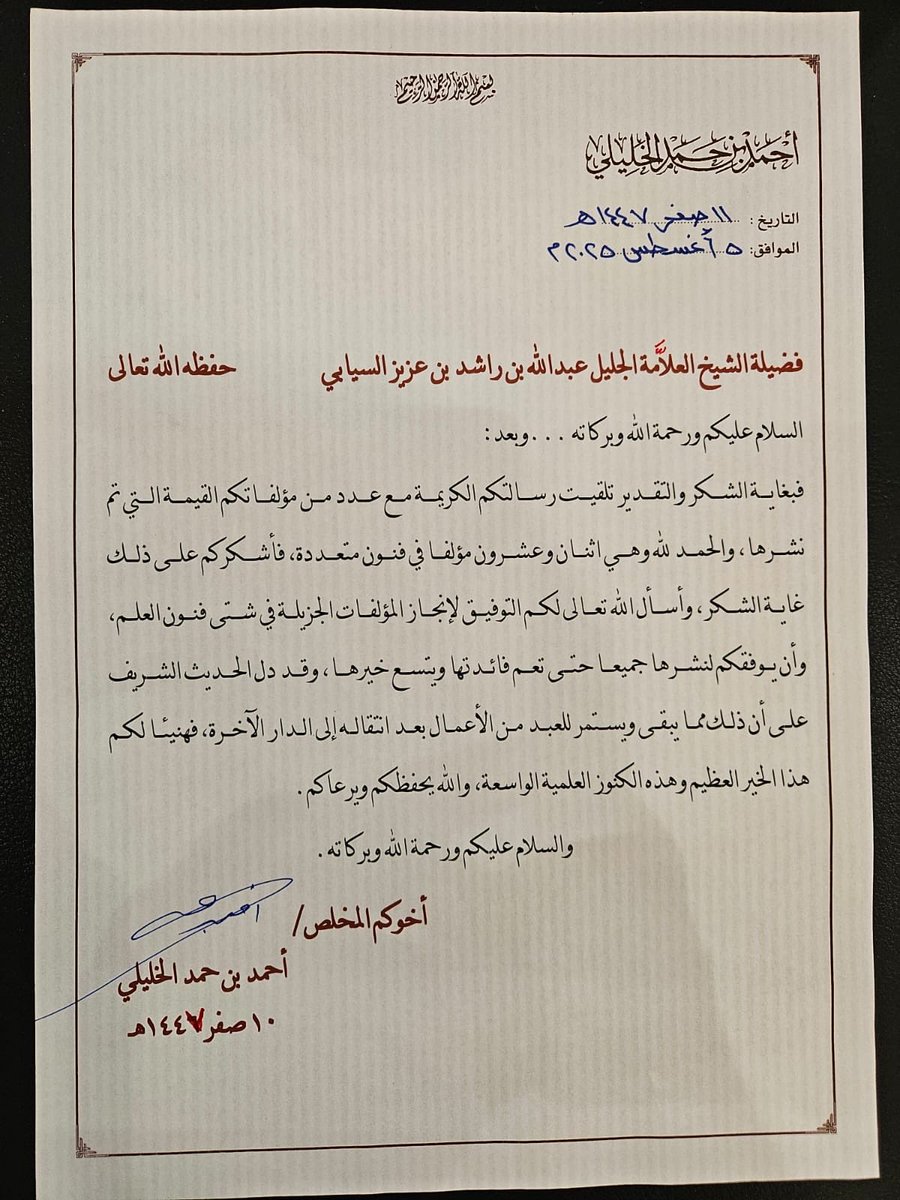 بسم الله الرحمن الرحيم
أحمد بن حمد الخليلي
التاريخ : ١١ صفر ١٤٤٧هـ
الموافق: ٥ أغسطس ٢٠٢٥م
فضيلة الشيخ العلاَّمة الجليل عبدالله بن راشد بن عزيز السيابي حفظه الله تعالى
السلام عليكم ورحمة الله وبركاته . . . وبعد :
فبغاية الشكر والتقدير تلقيت رسالتكم الكريمة مع عدد من مؤلفاتكم القيمة التي تم
نشرها ، والحمد لله وهي اثنان وعشرون مؤلفا في فنون متعددة، فأشكركم على ذلك
غاية الشكر، وأسأل الله تعالى لكم التوفيق لإنجاز المؤلفات الجزيلة في شتى فنون العلم،
وأن يوفقكم لنشرها جميعا حتى تعم فائدتها ويتسع خيرها ، وقد دل الحديث الشريف
على أن ذلك مما يبقى ويستمر للعبد من الأعمال بعد انتقاله إلى الدار الآخرة، فهنيئا لكم
هذا الخير العظيم وهذه الكنوز العلمية الواسعة، والله يحفظكم ويرعاكم .
والسلام عليكم ورحمة الله وبركاته .
أخوكم المخلص/
أحمد بن حمد الخليلي
١٠ صفر ١٤٤٧هـ